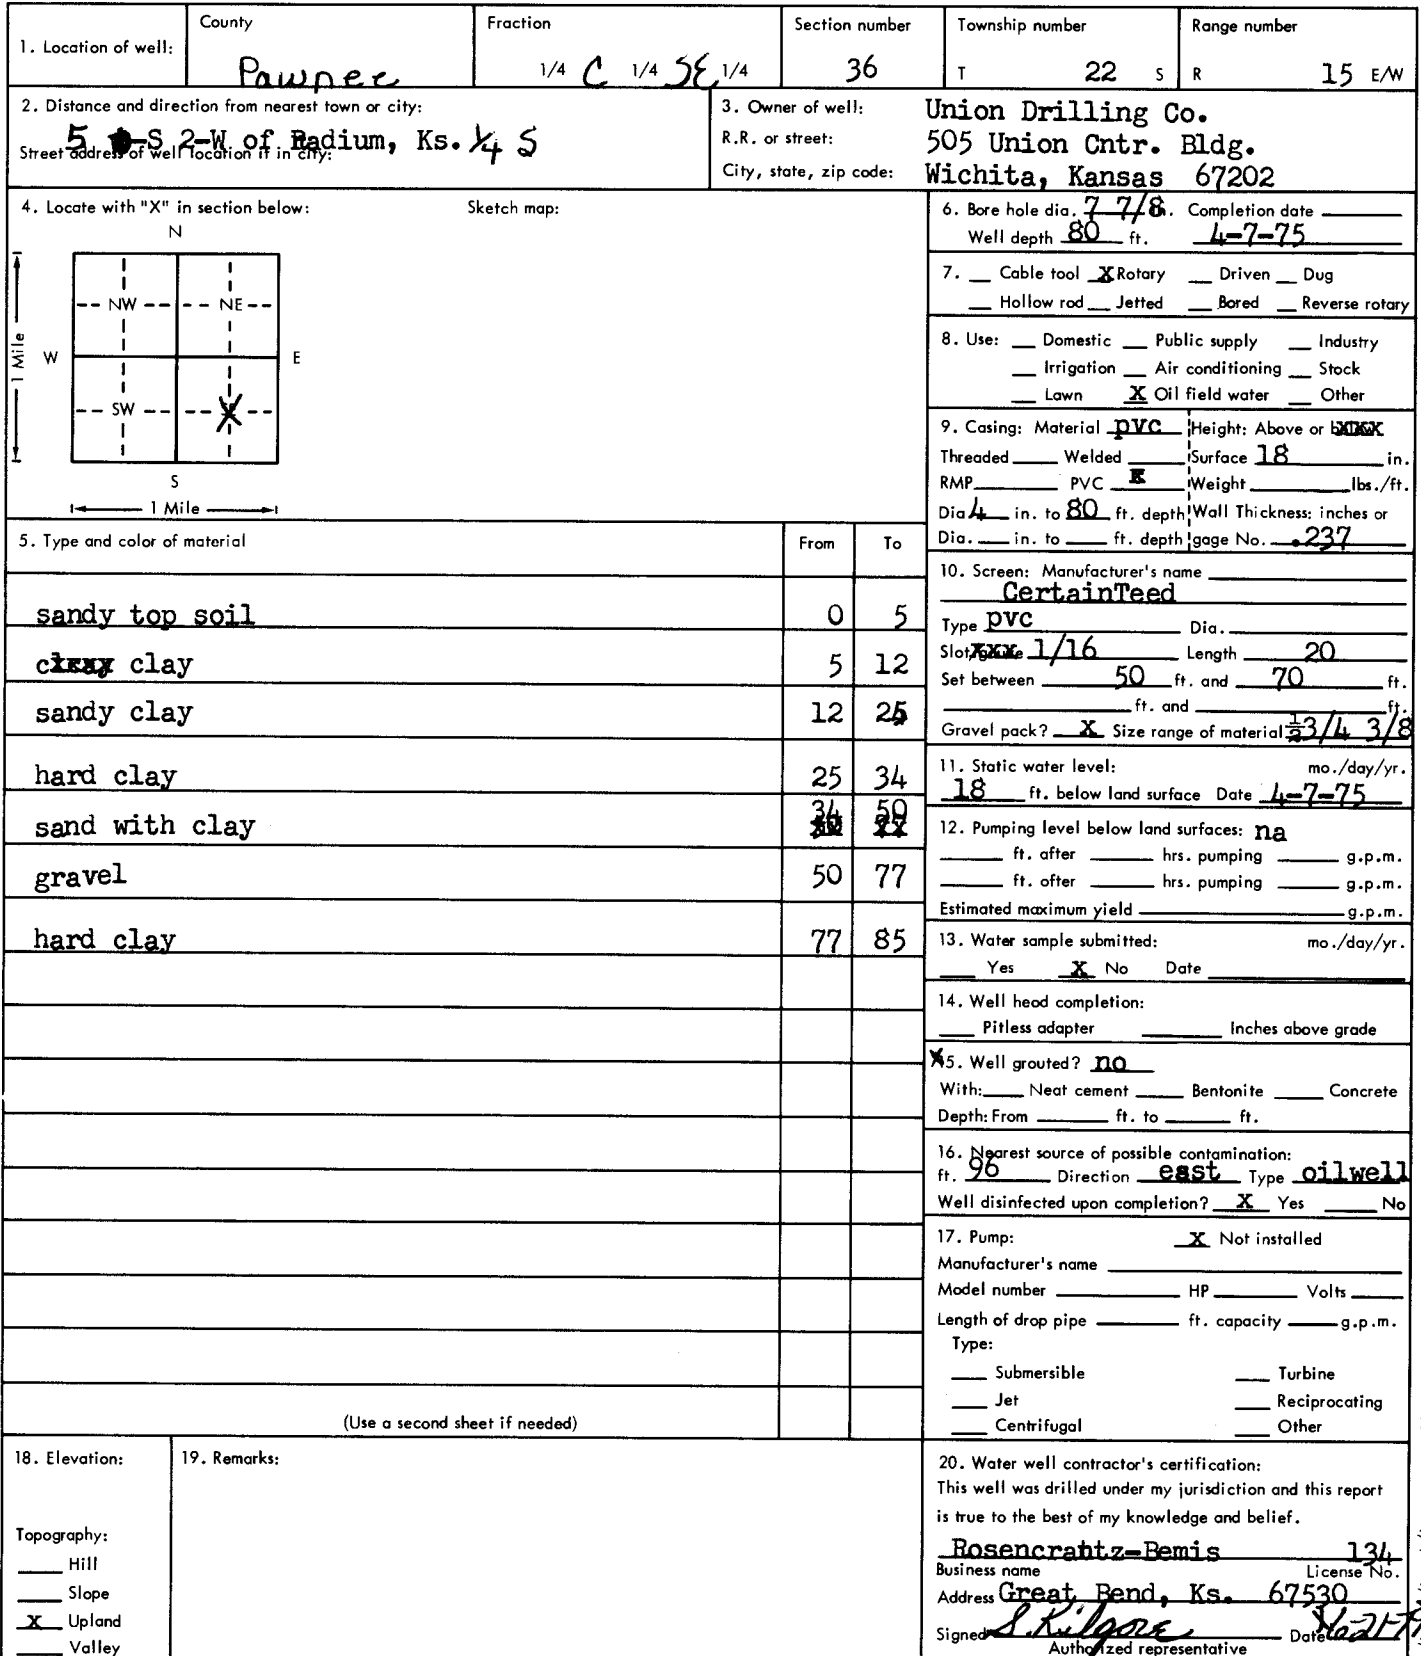 1. Location of well:
County
Pawnee
Fraction
1/4 C 1/4 SE 1/4
Section number
36
Township number
T 22 S
Range number
R 15 E/W
2. Distance and direction from nearest town or city:
5 -S 2-W of Radium, Ks. 1/4 S
Street address of well location if in city:
3. Owner of well: Union Drilling Co.
R.R. or street: 505 Union Cntr. Bldg.
City, state, zip code: Wichita, Kansas 67202
4. Locate with "X" in section below:
Sketch map:
N
NW NE
1 Mile
W E
SW X
S
1 Mile
5. Type and color of material From To
sandy top soil 0 5
clay 5 12
sandy clay 12 25
hard clay 25 34
sand with clay 34 50
gravel 50 77
hard clay 77 85
(Use a second sheet if needed)
6. Bore hole dia. 7 7/8 . Completion date
Well depth 80 ft. 4-7-75
7. Cable tool X Rotary Driven Dug
Hollow rod Jetted Bored Reverse rotary
8. Use: Domestic Public supply Industry
Irrigation Air conditioning Stock
Lawn X Oil field water Other
9. Casing: Material pvc Height: Above or xxxx
Threaded Welded Surface 18 in.
RMP PVC Weight lbs./ft.
Dia 4 in. to 80 ft. depth Wall Thickness: inches or
Dia. in. to ft. depth gage No. .237
10. Screen: Manufacturer's name
CertainTeed
Type pvc Dia.
Slot/ 1/16 Length 20
Set between 50 ft. and 70 ft.
ft. and ft.
Gravel pack? X Size range of material 1/2 3/4 3/8
11. Static water level: mo./day/yr.
18 ft. below land surface Date 4-7-75
12. Pumping level below land surfaces: na
ft. after hrs. pumping g.p.m.
ft. ofter hrs. pumping g.p.m.
Estimated maximum yield g.p.m.
13. Water sample submitted: mo./day/yr.
Yes X No Date
14. Well head completion:
Pitless adapter Inches above grade
15. Well grouted? no
With: Neat cement Bentonite Concrete
Depth: From ft. to ft.
16. Nearest source of possible contamination:
ft. 96 Direction east Type oilwell
Well disinfected upon completion? X Yes No
17. Pump: X Not installed
Manufacturer's name
Model number HP Volts
Length of drop pipe ft. capacity g.p.m.
Type:
Submersible Turbine
Jet Reciprocating
Centrifugal Other
18. Elevation:
Topography:
Hill
Slope
X Upland
Valley
19. Remarks:
20. Water well contractor's certification:
This well was drilled under my jurisdiction and this report
is true to the best of my knowledge and belief.
Rosencrantz-Bemis 134
Business name License No.
Address Great Bend, Ks. 67530
Signed S. Kilgore Date
Authorized representative